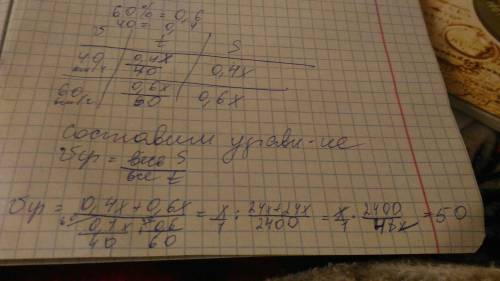 60% = 0,6
40 = 0,4
v t S
40 км/ч 0,4x/40 0,4x
60 км/ч 0,6x/60 0,6x
Составим уравн-ие
vср = все S/все t
vср = (0,4x+0,6x)/(0,4x/40 + 0,6/60) = x/1 : (24x+24x)/2400 = x/1 · 2400/48x = 50